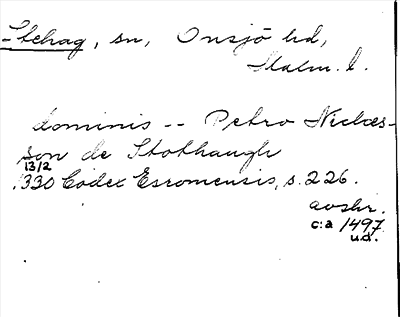 Stehag, sn, Onsjö hd,
Malm. l.
dominis -- Petro Niclæs-
son de Stothaugh
13/2
1330 Codex Esromensis, s. 226.
avskr.
c:a 1497
u.d.